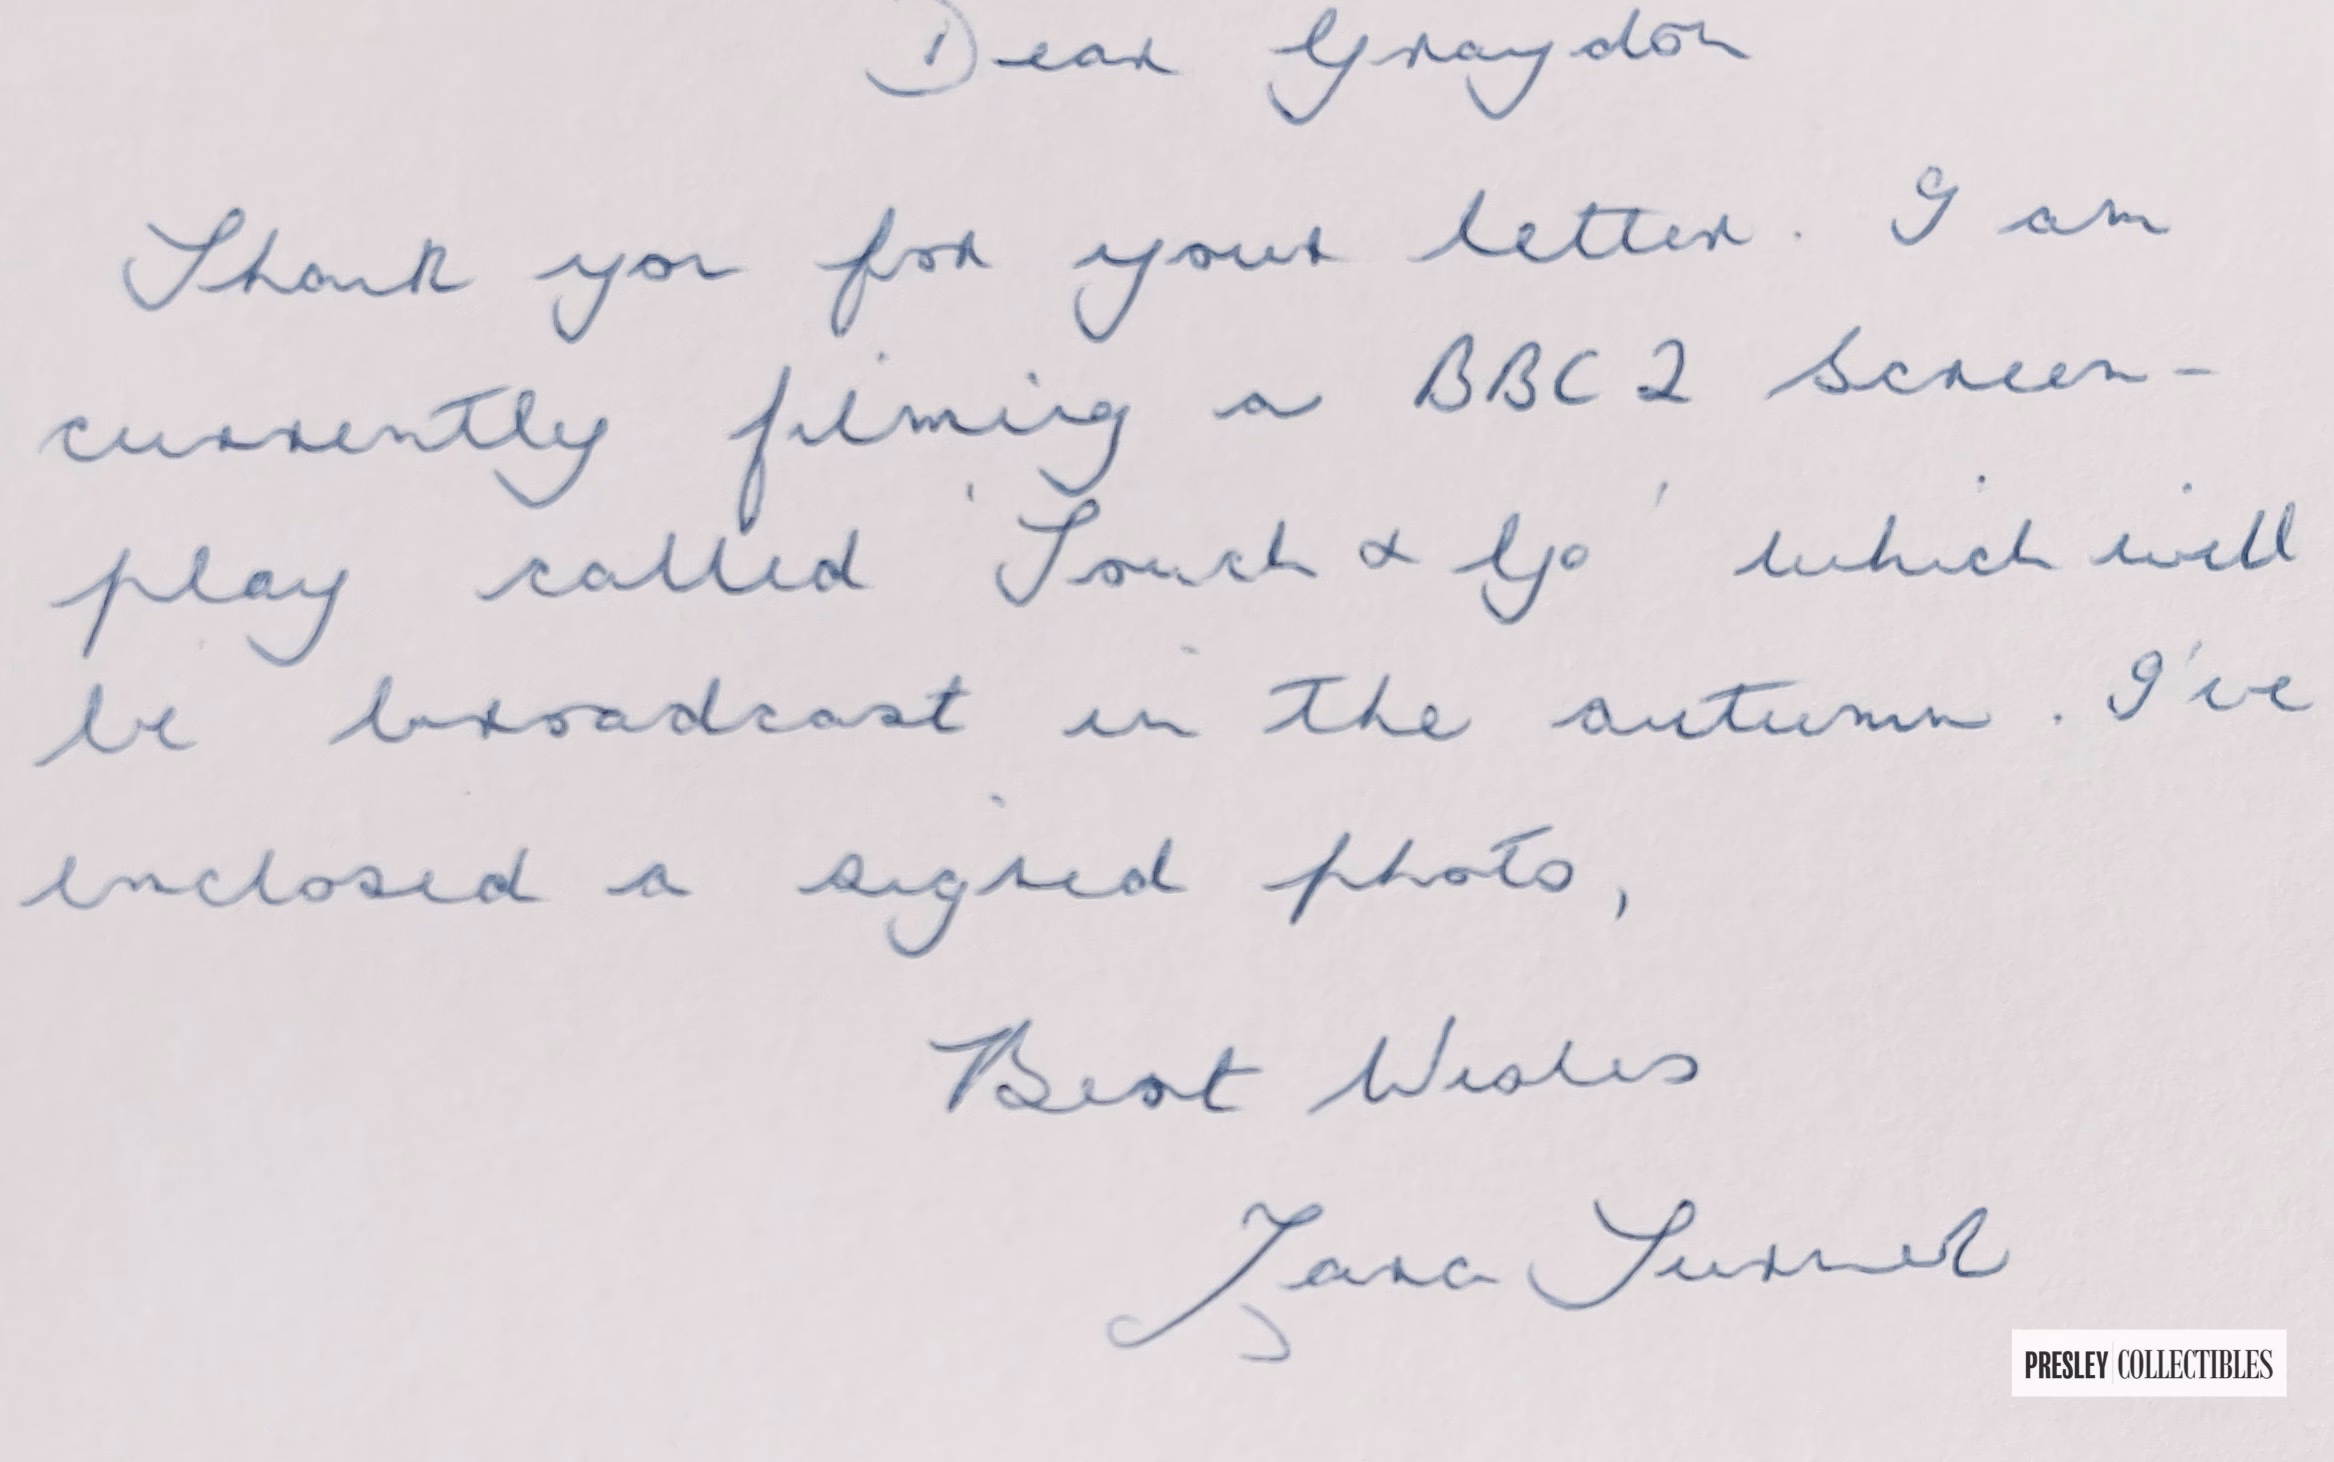 Dear Graydon
Thank you for your letter. I am
currently filming a BBC2 Screen-
play called 'Touch & Go' which will
be broadcast in the autumn. I've
enclosed a signed photo,
Best Wishes
Zara Turner
PRESLEY COLLECTIBLES